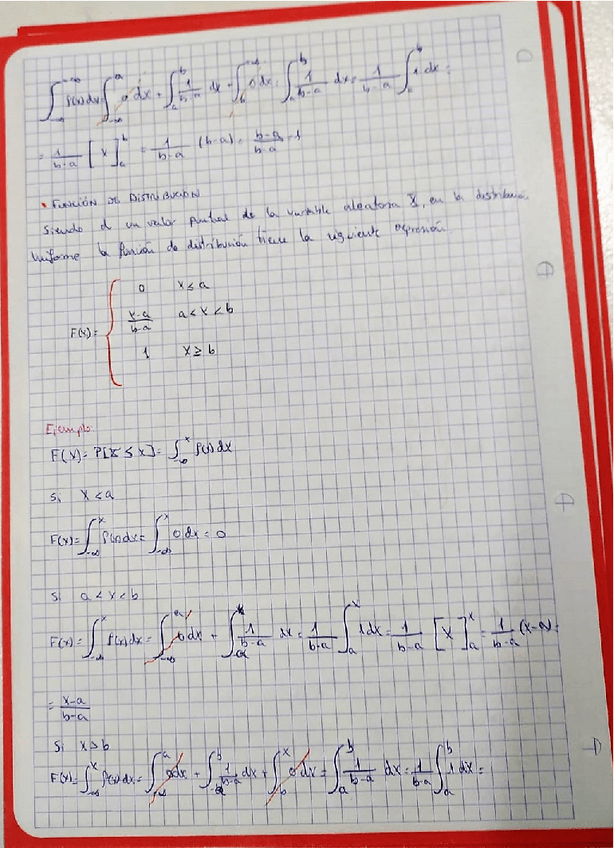 ∫_{-∞}^{-∞} f(x)dx ∫_{-∞}^{a} 0 dx + ∫_a^b 1/(b-a) dx + ∫_b^{-∞} 0 dx = ∫_a^b 1/(b-a) dx = 1/(b-a) ∫_a^b 1 dx =
= 1/(b-a) [x]_a^b = 1/(b-a) (b-a) = (b-a)/(b-a) = 1
• FUNCIÓN DE DISTRIBUCIÓN
Siendo d un valor puntual de la variable aleatoria X, en la distribución
Uniforme la función de distribución tiene la siguiente expresión
F(x) = {
0 x ≤ a
(x-a)/(b-a) a < x < b
1 x ≥ b
Ejemplo:
F(x) = P[X ≤ x] = ∫_{-∞}^x f(x) dx
Si x < a
F(x) = ∫_{-∞}^x f(x)dx = ∫_{-∞}^x 0 dx = 0
Si a < x < b
F(x) = ∫_{-∞}^x f(x)dx = ∫_{-∞}^a 0 dx + ∫_a^x 1/(b-a) dx = 1/(b-a) ∫_a^x 1 dx = 1/(b-a) [x]_a^x = 1/(b-a) (x-a) =
= (x-a)/(b-a)
Si x > b
F(x) = ∫_{-∞}^x f(x)dx = ∫_{-∞}^a 0 dx + ∫_a^b 1/(b-a) dx + ∫_b^x 0 dx = ∫_a^b 1/(b-a) dx = 1/(b-a) ∫_a^b 1 dx =